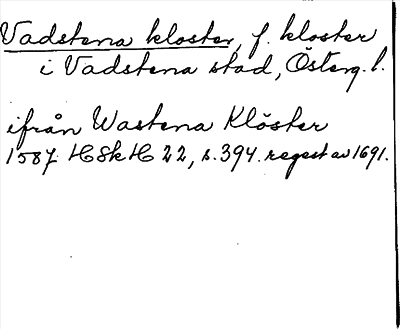 Vadstena kloster, f. kloster
i Vadstena stad, Österg. l.
ifrån Wastena Klöster
1587 HSkH 22, s. 394. regest av 1691.